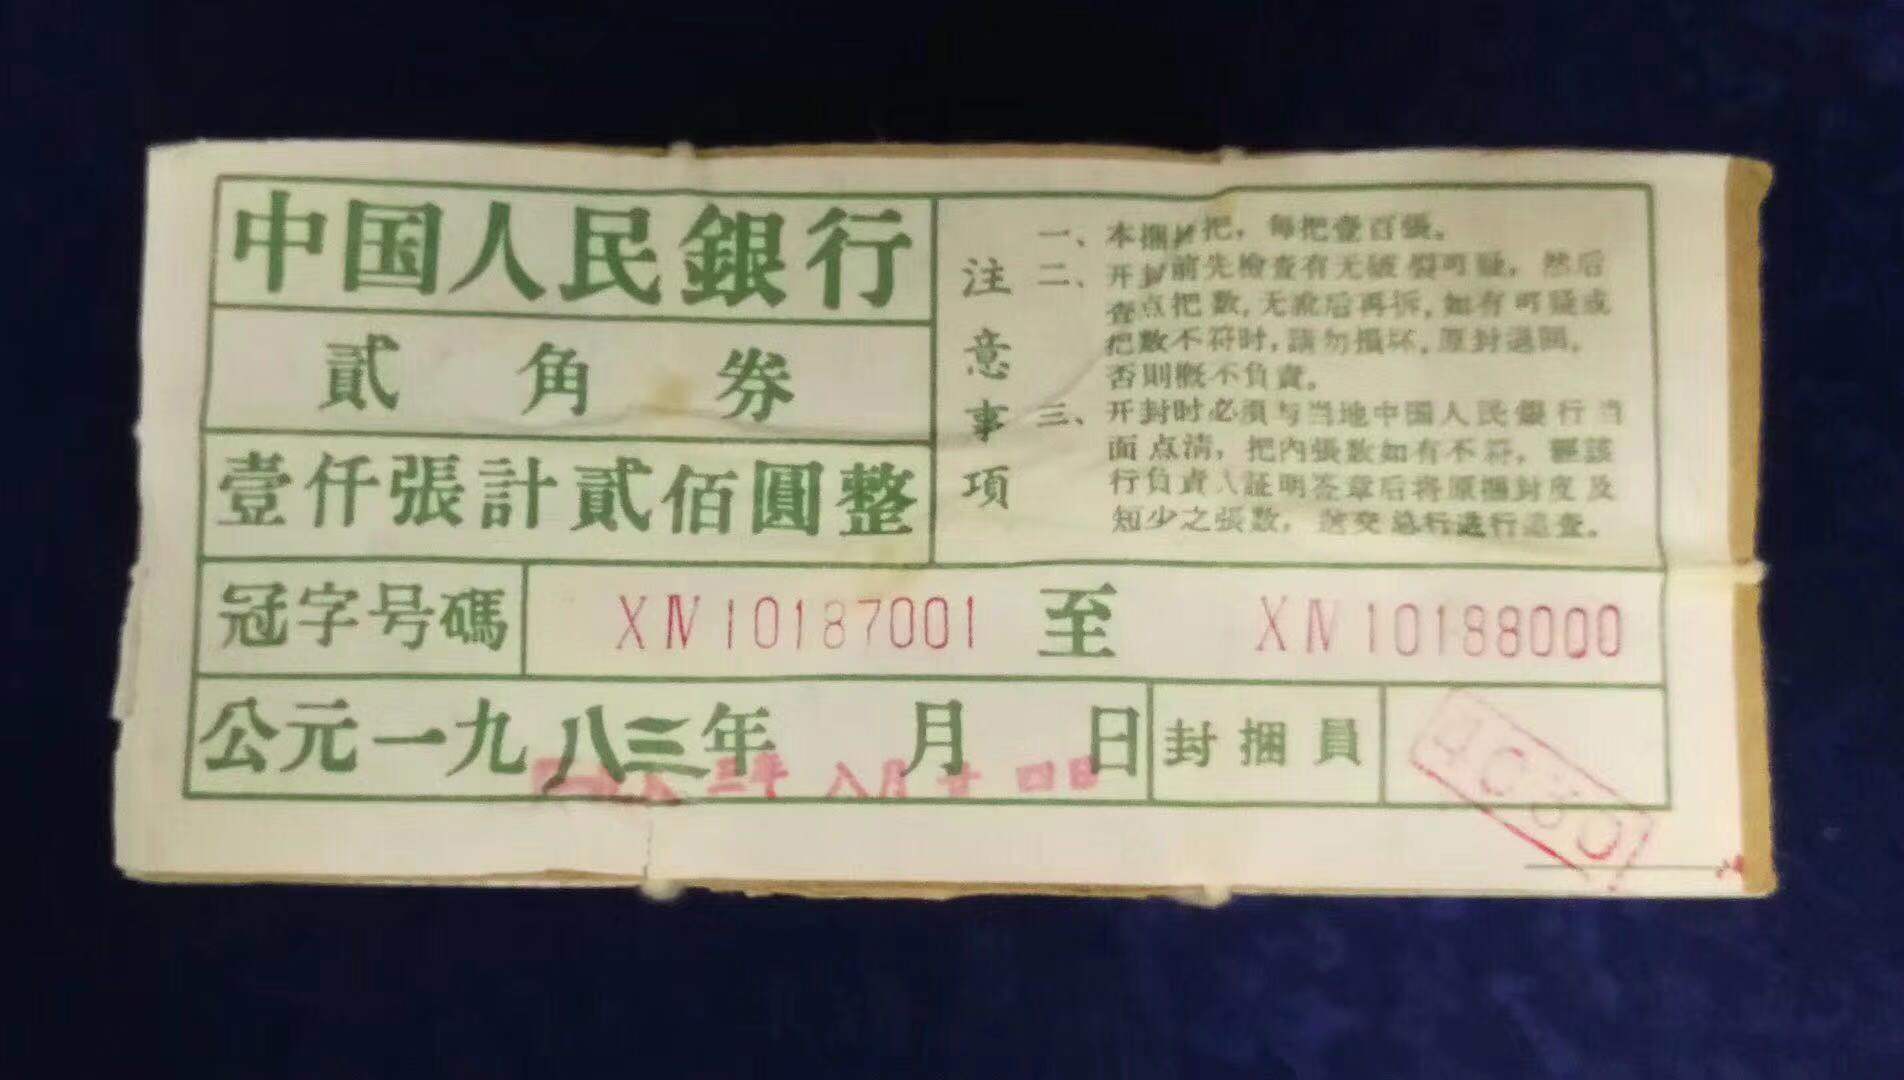 中国人民銀行
貳角券
壹仟張計貳佰圓整
注意事項
一、本捆 把，每把壹百張。
二、开封前先檢查有无破裂可疑，然后
查点把数，无訛后再拆，如有可疑或
把数不符时，請勿損坏，原封退囘，
否則概不負責。
三、开封时必須与当地中国人民銀行当
面点清，把內張数如有不符，經該
行負責人証明签章后将原捆封皮及
短少之張数， 交总行进行追查。
冠字号碼
XⅣ10187001 至 XⅣ10188000
公元一九八三年 月 日
八三年八月廿四日
封捆員